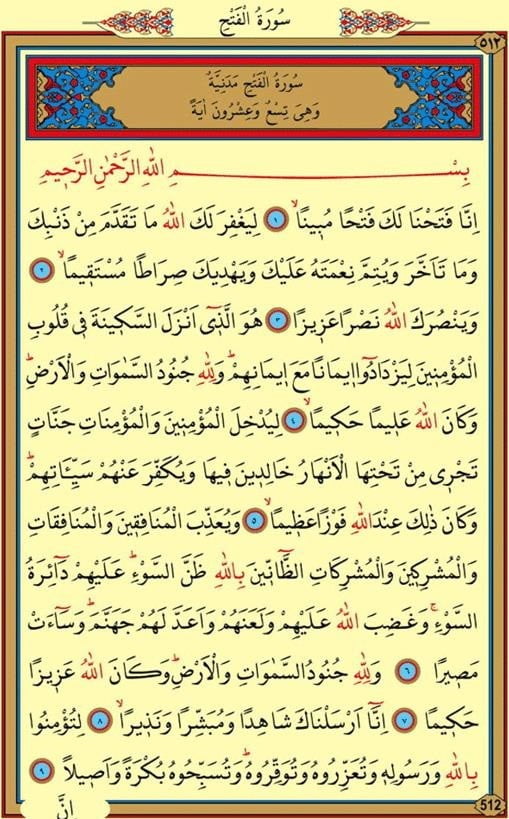 سُورَةُ الْفَتْحِ
٥١٢
سُورَةُ الْفَتْحِ مَدَنِيَّةٌ
وَهِىَ تِسْعٌ وَعِشْرُونَ اٰيَةً
بِسْمِ اللّٰهِ الرَّحْمٰنِ الرَّحٖيمِ
اِنَّا فَتَحْنَا لَكَ فَتْحًا مُبٖينًاۙ ﴿١﴾ لِيَغْفِرَ لَكَ اللّٰهُ مَا تَقَدَّمَ مِنْ ذَنْبِكَ
وَمَا تَاَخَّرَ وَيُتِمَّ نِعْمَتَهُ عَلَيْكَ وَيَهْدِيَكَ صِرَاطًا مُسْتَقٖيمًاۙ ﴿٢﴾
وَيَنْصُرَكَ اللّٰهُ نَصْرًا عَزٖيزًا ﴿٣﴾ هُوَ الَّذٖٓى اَنْزَلَ السَّكٖينَةَ فٖى قُلُوبِ
الْمُؤْمِنٖينَ لِيَزْدَادُٓوا اٖيمَانًا مَعَ اٖيمَانِهِمْؕ وَلِلّٰهِ جُنُودُ السَّمٰوَاتِ وَالْاَرْضِؕ
وَكَانَ اللّٰهُ عَلٖيمًا حَكٖيمًاۙ ﴿٤﴾ لِيُدْخِلَ الْمُؤْمِنٖينَ وَالْمُؤْمِنَاتِ جَنَّاتٍ
تَجْرٖى مِنْ تَحْتِهَا الْاَنْهَارُ خَالِدٖينَ فٖيهَا وَيُكَفِّرَ عَنْهُمْ سَيِّـَٔاتِهِمْؕ
وَكَانَ ذٰلِكَ عِنْدَ اللّٰهِ فَوْزًا عَظٖيمًاۙ ﴿٥﴾ وَيُعَذِّبَ الْمُنَافِقٖينَ وَالْمُنَافِقَاتِ
وَالْمُشْرِكٖينَ وَالْمُشْرِكَاتِ الظَّٓانّٖينَ بِاللّٰهِ ظَنَّ السَّوْءِؕ عَلَيْهِمْ دَٓائِرَةُ
السَّوْءِۚ وَغَضِبَ اللّٰهُ عَلَيْهِمْ وَلَعَنَهُمْ وَاَعَدَّ لَهُمْ جَهَنَّمَؕ وَسَٓاءَتْ
مَصٖيرًا ﴿٦﴾ وَلِلّٰهِ جُنُودُ السَّمٰوَاتِ وَالْاَرْضِؕ وَكَانَ اللّٰهُ عَزٖيزًا
حَكٖيمًا ﴿٧﴾ اِنَّٓا اَرْسَلْنَاكَ شَاهِدًا وَمُبَشِّرًا وَنَذٖيرًاۙ ﴿٨﴾ لِتُؤْمِنُوا
بِاللّٰهِ وَرَسُولِهٖ وَتُعَزِّرُوهُ وَتُوَقِّرُوهُؕ وَتُسَبِّحُوهُ بُكْرَةً وَاَصٖيلًا ﴿٩﴾
اِنَّ
512